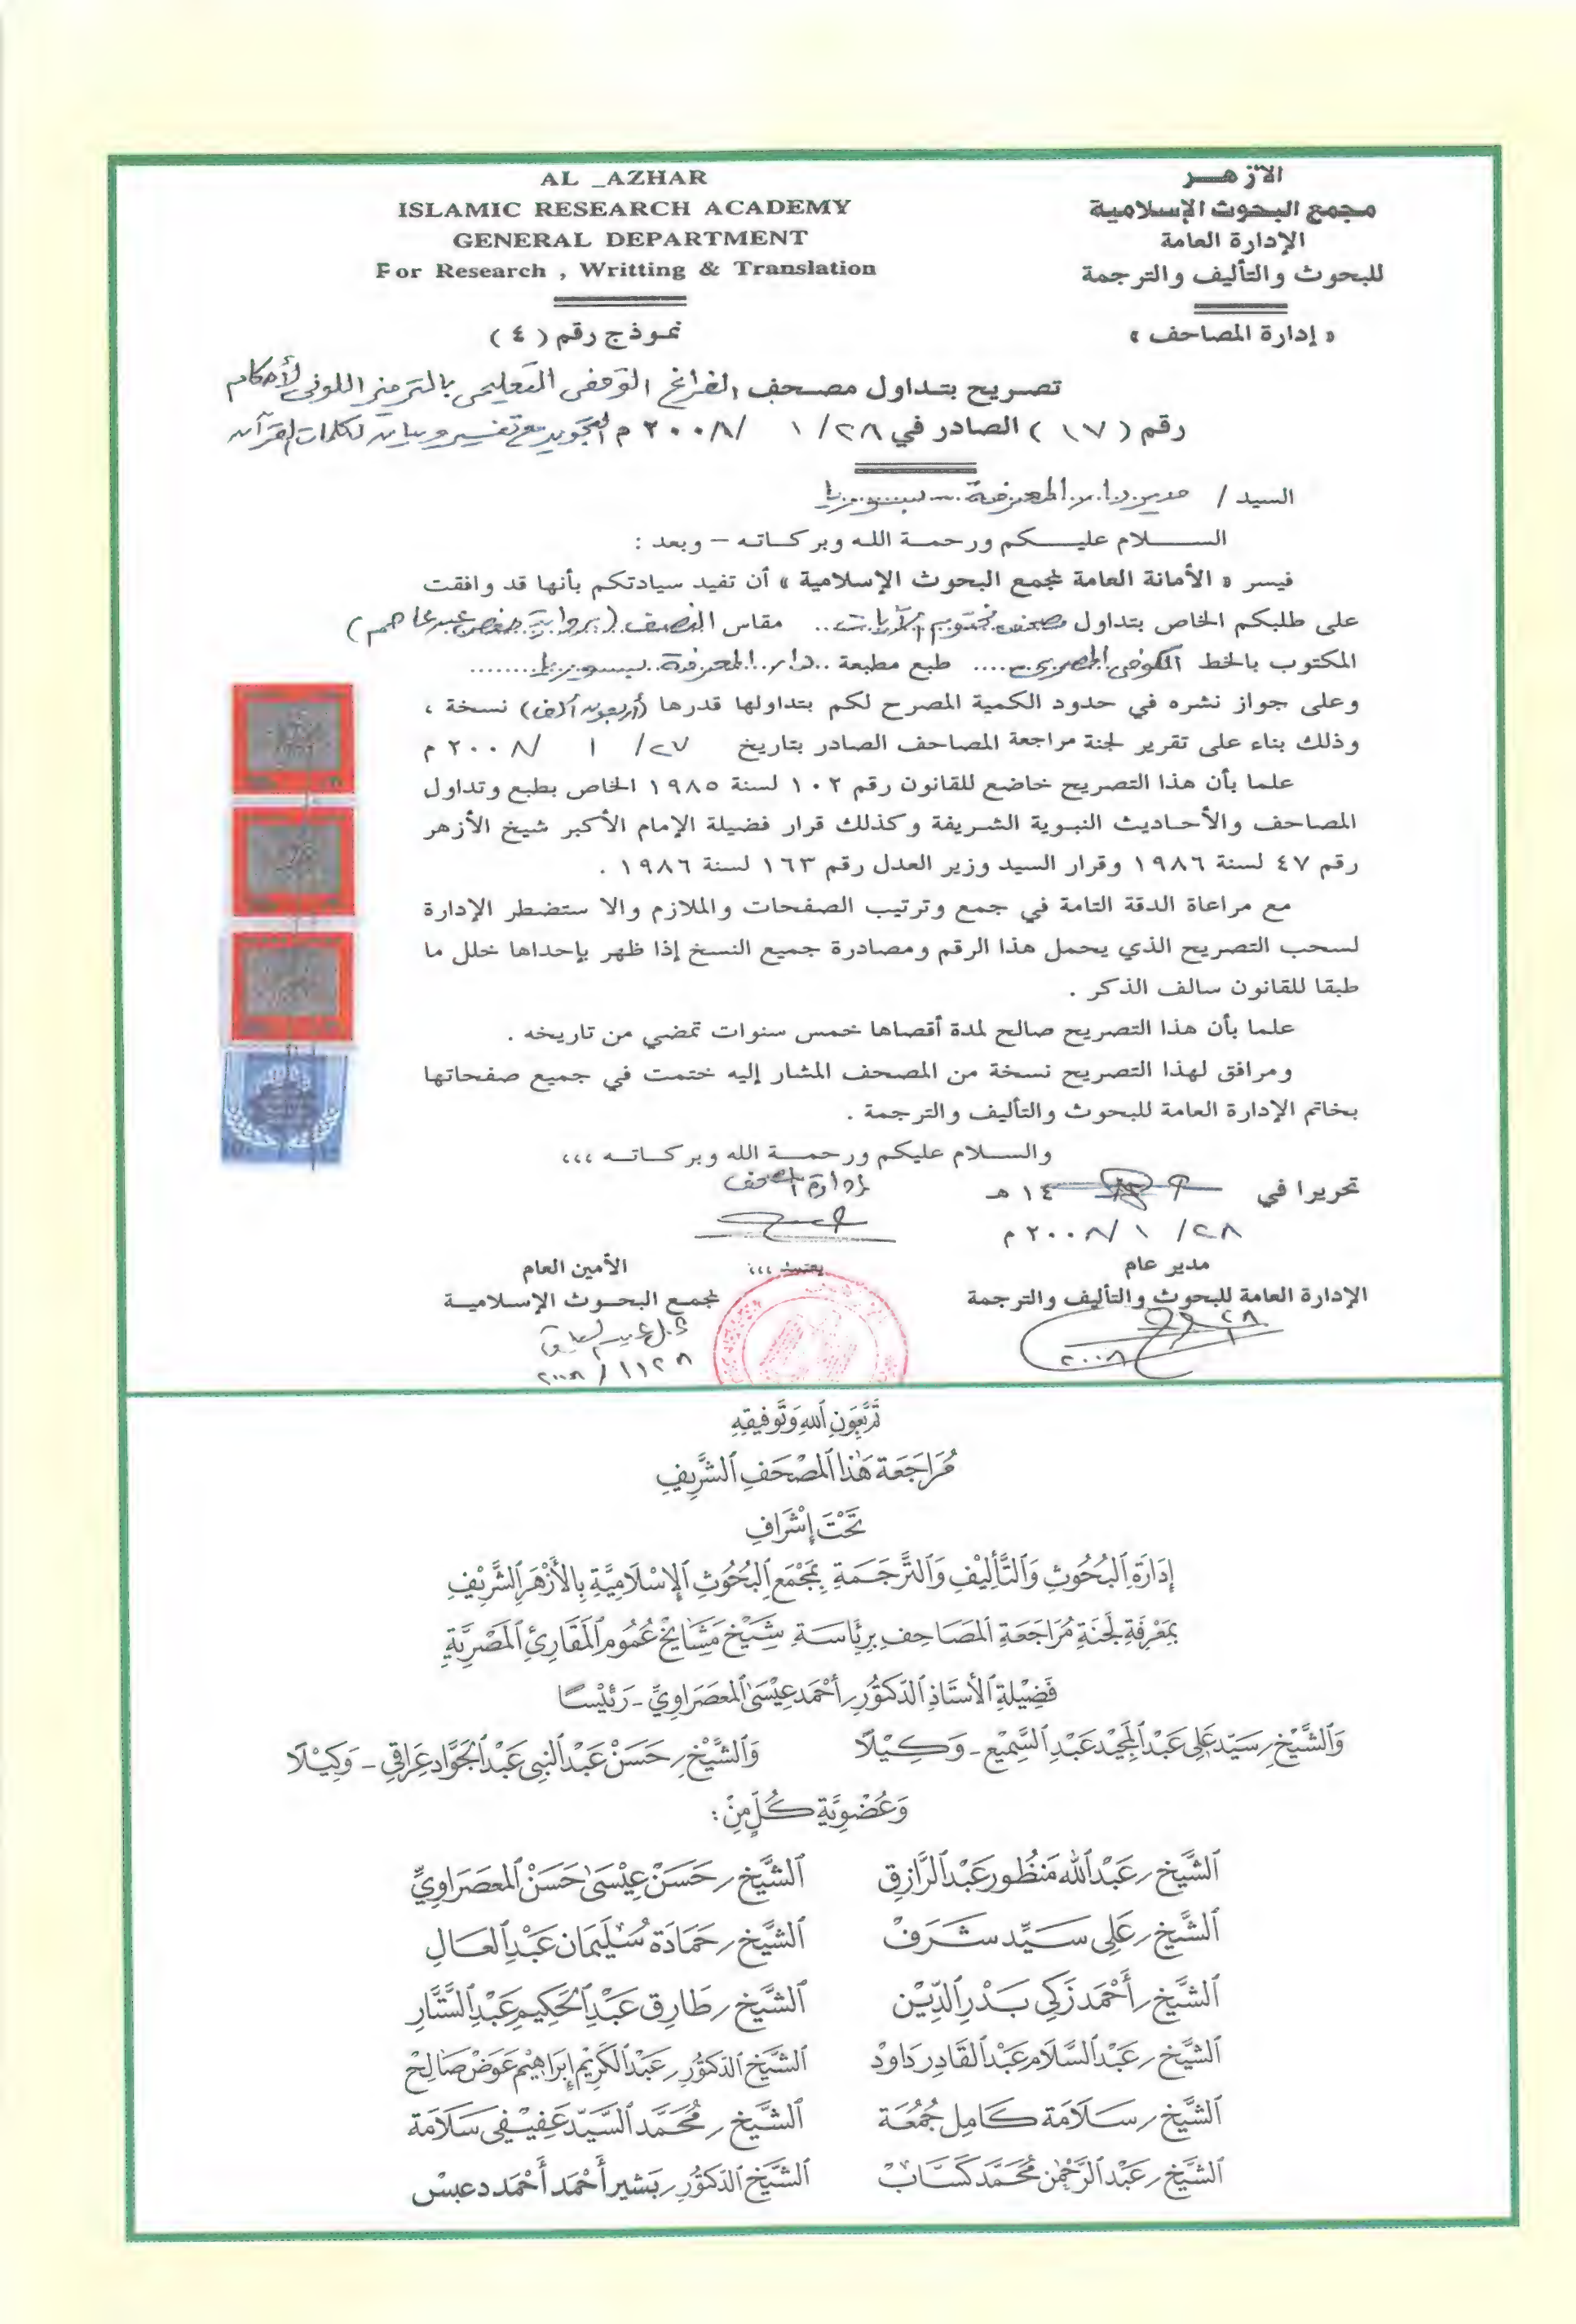 AL _AZHAR
ISLAMIC RESEARCH ACADEMY
GENERAL DEPARTMENT
For Research , Writting & Translation
الأزهــر
مجمع البحوث الإسلامية
الإدارة العامة
للبحوث والتأليف والترجمة
« إدارة المصاحف »
نموذج رقم ( ٤ )
تصريح بتداول مصحف الفراغ الوقفى التعليمى بالترميز اللونى لأحكام
رقم ( ١٧ ) الصادر في ٢٨/ ١ /٢٠٠٨ م التجويد مع تفسير وبيان لكلمات القرآن
السيد / مدير دار المعرفة - بسوريا
الســـلام عليـــكم ورحمـة اللـه وبركـاتـه – وبعد :
فيسر « الأمانة العامة لمجمع البحوث الإسلامية » أن تفيد سيادتكم بأنها قد وافقت
على طلبكم الخاص بتداول مصحف مختوم الآيات .. مقاس النصف (برواية حفص عن عاصم)
المكتوب بالخط الكوفى المصرى .... طبع مطبعة .. دار المعرفة بسوريا ........
وعلى جواز نشره في حدود الكمية المصرح لكم بتداولها قدرها (أربعون ألف) نسخة ،
وذلك بناء على تقرير لجنة مراجعة المصاحف الصادر بتاريخ ٢٧/ ١ /٢٠٠٨ م
علما بأن هذا التصريح خاضع للقانون رقم ١٠٢ لسنة ١٩٨٥ الخاص بطبع وتداول
المصاحف والأحـاديث النبـوية الشـريفة وكذلك قرار فضيلة الإمام الأكبر شيخ الأزهر
رقم ٤٧ لسنة ١٩٨٦ وقرار السيد وزير العدل رقم ١٦٣ لسنة ١٩٨٦ .
مع مراعاة الدقة التامة في جمع وترتيب الصفحات والملازم والا ستضطر الإدارة
لسحب التصريح الذي يحمل هذا الرقم ومصادرة جميع النسخ إذا ظهر بإحداها خلل ما
طبقا للقانون سالف الذكر .
علما بأن هذا التصريح صالح لمدة أقصاها خمس سنوات تمضي من تاريخه .
ومرافق لهذا التصريح نسخة من المصحف المشار إليه ختمت في جميع صفحاتها
بخاتم الإدارة العامة للبحوث والتأليف والترجمة .
والسـلام عليكم ورحمـة الله وبركـاتـه ،،،
تحريرا في ١٤ هـ
إدارة المصاحف
٢٨/ ١ /٢٠٠٨ م
مدير عام
الإدارة العامة للبحوث والتأليف والترجمة
يعتمد ،،،
الأمين العام
لمجمع البحـوث الإسـلاميـة
٢٠٠٨
٢٠٠٨/١/٢٨
تَمَّ بِعَوْنِ اللهِ وَتَوْفِيقِهِ
مُرَاجَعَة هَٰذَا الْمُصْحَفِ الشَّرِيفِ
تَحْتَ إِشْرَافِ
إِدَارَةِ الْبُحُوثِ وَالتَّأْلِيْفِ وَالتَّرْجَمَةِ بِمَجْمَعِ الْبُحُوثِ الْإِسْلَامِيَّةِ بِالْأَزْهَرِ الشَّرِيْفِ
بِمَعْرِفَةِ لَجْنَةِ مُرَاجَعَةِ الْمَصَاحِفِ بِرِئَاسَةِ شَيْخِ مَشَايِخِ عُمُومِ الْمَقَارِئِ الْمَصْرِيَّةِ
فَضِيْلَةِ الْأُسْتَاذِ الدَّكْتُوْرِ/ أَحْمَد عِيْسَىٰ الْمَعْصَرَاوِيِّ - رَئِيْسًا
وَالشَّيْخِ/ سَيِّد عَلِى عَبْد الْمَجِيْد عَبْد السَّمِيْع - وَكِيْلًا
وَالشَّيْخِ/ حَسَنْ عَبْد النَّبِى عَبْد الْجَوَّاد عِرَاقِي - وَكِيْلًا
وَعُضْوِيَّةِ كُلٍّ مِنْ:
الشَّيْخ/ عَبْد اللَّه مَنْظُور عَبْد الرَّازِق
الشَّيْخ/ حَسَنْ عِيْسَىٰ حَسَنْ الْمَعْصَرَاوِيِّ
الشَّيْخ/ عَلِي سَيِّد شَرَفْ
الشَّيْخ/ حَمَادَة سُلَيْمَان عَبْد الْعَال
الشَّيْخ/ أَحْمَد زَكِي بَدْر الدِّيْن
الشَّيْخ/ طَارِق عَبْد الْحَكِيْم عَبْد السَّتَّارِ
الشَّيْخ/ عَبْد السَّلَام عَبْد الْقَادِر دَاوْد
الشَّيْخ الدَّكْتُوْر/ عَبْد الْكَرِيْم إِبْرَاهِيْم عَوَضْ صَالِحْ
الشَّيْخ/ سَلَامَة كَامِل جُمُعَة
الشَّيْخ/ مُحَمَّد السَّيِّد عَفِيْفِي سَلَامَة
الشَّيْخ/ عَبْد الرَّحْمٰن مُحَمَّد كَسَّاب
الشَّيْخ الدَّكْتُوْر/ بَشِير أَحْمَد أَحْمَد دعبسْ